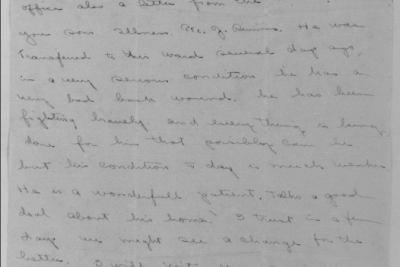 office also a letter from the
you sons illness Mr. J.
transfered to this ward several day ago,
in a very serious condition he has a
very bad back wound. he has been
fighting bravely and every thing is being
done for him that possibly can be
but his condition to day is much weaker
He is a wonderfull patient, talks a good
deal about his home. I trust in a few
days we might see a change for the
better. I will